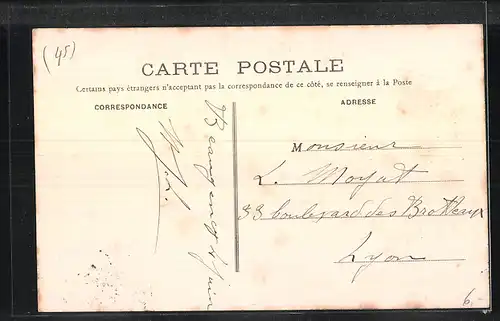 (45)
CARTE POSTALE
Certains pays étrangers n'acceptant pas la correspondance de ce côté, se renseigner à la Poste
CORRESPONDANCE
ADRESSE
Beaugency Juin
Monsieur
L. Moyat
33 boulevard des Brotteaux
Lyon
6